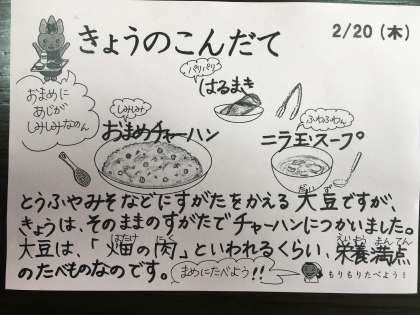 きょうのこんだて
2/20 (木)
おまめに
あじが
しみしみなのん
パリパリ
はるまき
しみしみ
おまめチャーハン
ふわふわ
ニラ玉スープ
とうふやみそなどにすがたをかえる大豆ですが、
きょうは、そのままのすがたでチャーハンにつかいました。
大豆は、「畑の肉」といわれるくらい、栄養満点
のたべものなのです。
まめにたべよう!!
もりもりたべよう!